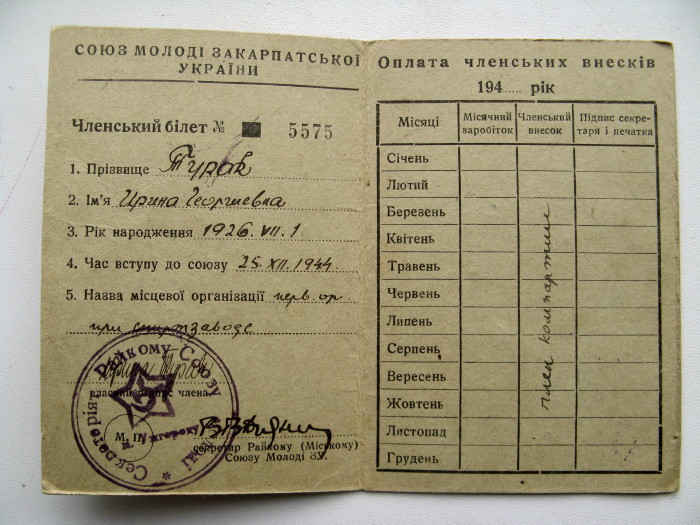 СОЮЗ МОЛОДІ ЗАКАРПАТСЬКОЇ
УКРАЇНИ
Членський білет № 5575
1. Прізвище Турак
2. Ім'я Ирина Георгиевна
3. Рік народження 1926. VII. 1.
4. Час вступу до союзу 25. XII. 1944
5. Назва місцевої організації перв. ор
при спиртзаводе
власний підпис члена
М. П.
Секретаріят Райкому Союзу
м. Ужгороду
секретар Райкому (Міському)
Союзу Молоді ЗУ.
Оплата членських внесків
194..... рік
Місяці
Місячний виробіток
Членський внесок
Підпис секретаря і печатка
Січень
Лютий
Березень
Квітень
Травень
Червень
Липень
Серпень
Вересень
Жовтень
Листопад
Грудень
член компартии